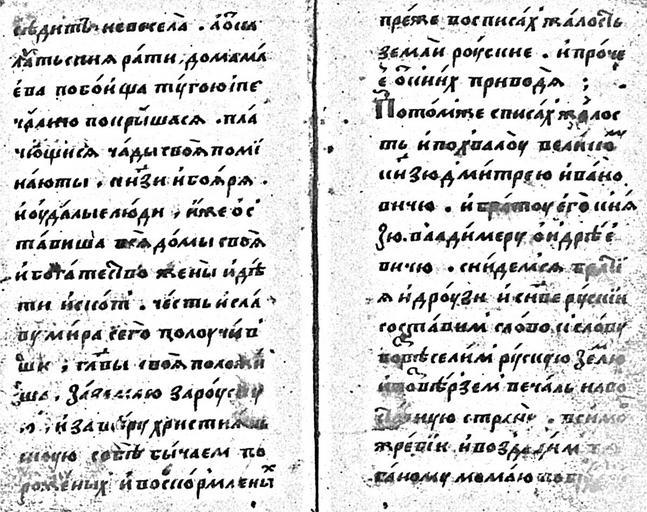 сѣдитъ невесела . а ѿ кал
латьския рати , домамаа
ева побоища тугою и пе
чалию покрышася . пла
чющися чады своя поми
наюты . кн҃зи и бояря .
и оудалые люди , иже ѡс
тавиша вся домы своя
и богатество жены и дѣ
ти и скот . честь и сла
ву мира сего полоучив
ши ; главы своя положи
ша . за землю за роускую
и за вѣру христиань
скую собѣ бычаем по
роженых и воскормленых
преже восписах жалость
земли роуские . и проче
е ѿ кних приводя ;
Потом же списах жалос
ть и похвалоу великом
кн҃зю дмитрею ивано
вичю . и братоу его кн҃я
зю . владимеру ондрѣе
вичю . снидемся братии
я и дроузи и сн҃ве рускии
составим слово к слову
возвѣселим рускую землю
и возвѣрзем печаль на во
сточную страну . в симо
жребии и воздадим
ганому момаю